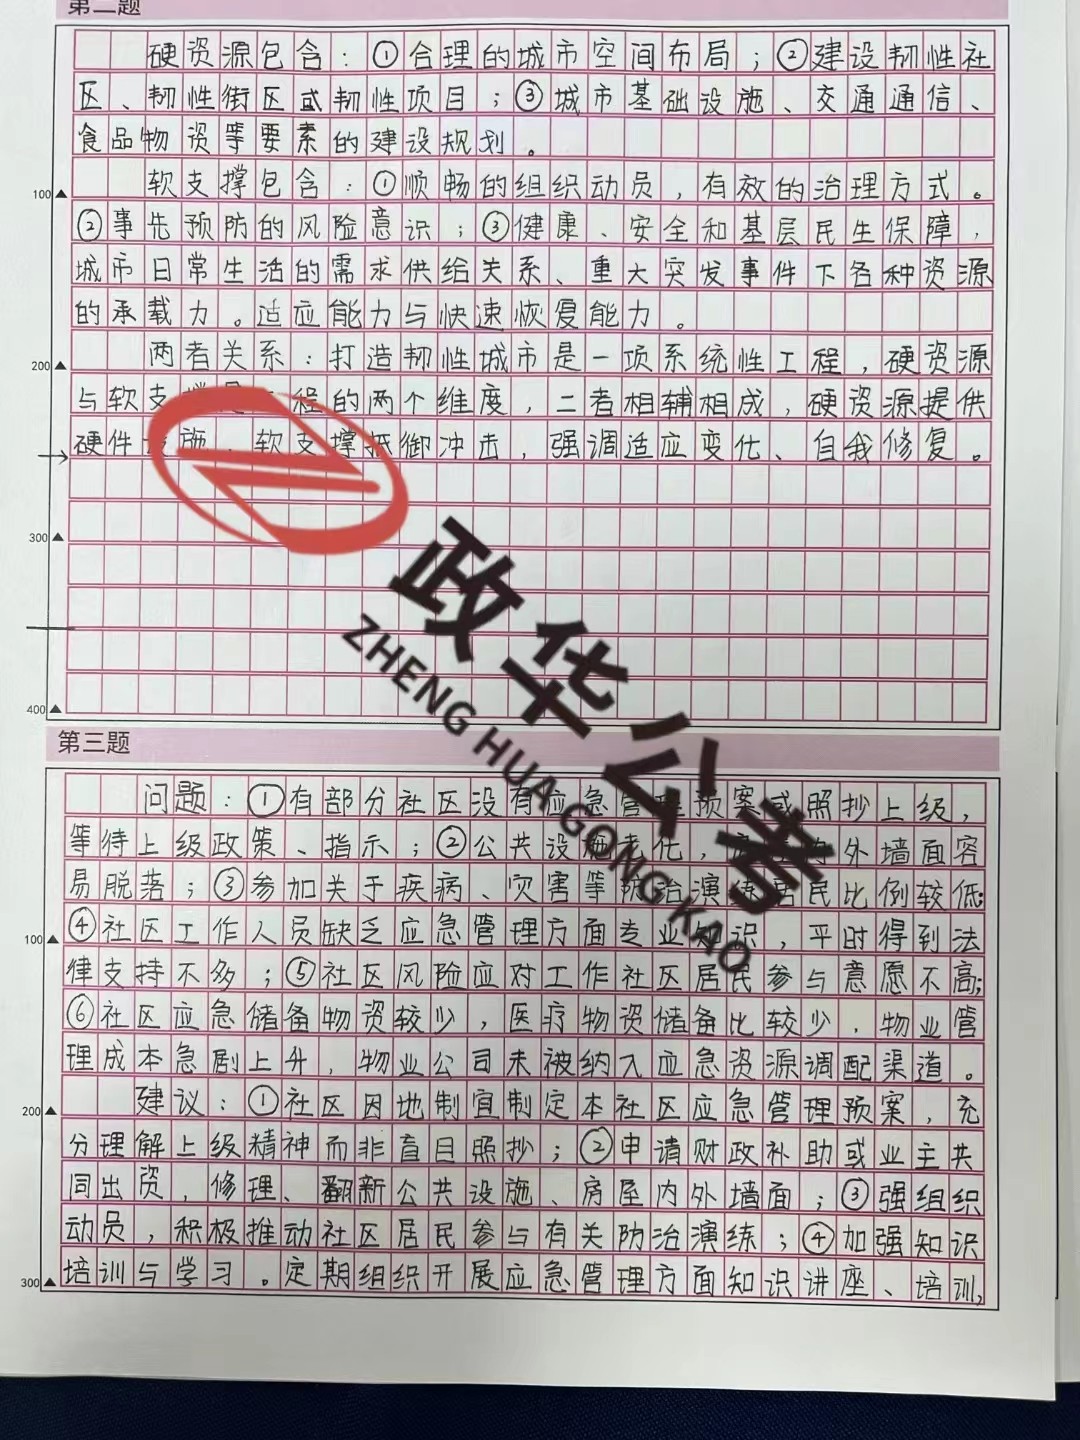 第二题
硬资源包含：①合理的城市空间布局；②建设韧性社
区、韧性街区或韧性项目；③城市基础设施、交通通信、
食品物资等要素的建设规划。
软支撑包含：①顺畅的组织动员，有效的治理方式。
100
②事先预防的风险意识；③健康、安全和基层民生保障，
城市日常生活的需求供给关系、重大突发事件下各种资源
的承载力。适应能力与快速恢复能力。
两者关系：打造韧性城市是一项系统性工程，硬资源
200
与软支撑是 程的两个维度，二者相辅相成，硬资源提供
硬件 施，软支撑抵御冲击，强调适应变化、自我修复。
300
400
政华公考
ZHENG HUA GONG KAO
第三题
问题：①有部分社区没有应急管理预案或照抄上级，
等待上级政策、指示；②公共设施老化， 外墙面容
易脱落；③参加关于疾病、灾害等防治演练居民比例较低；
④社区工作人员缺乏应急管理方面专业知识，平时得到法
100
律支持不多；⑤社区风险应对工作社区居民参与意愿不高；
⑥社区应急储备物资较少，医疗物资储备比较少，物业管
理成本急剧上升，物业公司未被纳入应急资源调配渠道。
建议：①社区因地制宜制定本社区应急管理预案，充
200
分理解上级精神而非盲目照抄；②申请财政补助或业主共
同出资，修理、翻新公共设施、房屋内外墙面；③强组织
动员，积极推动社区居民参与有关防治演练；④加强知识
培训与学习。定期组织开展应急管理方面知识讲座、培训，
300